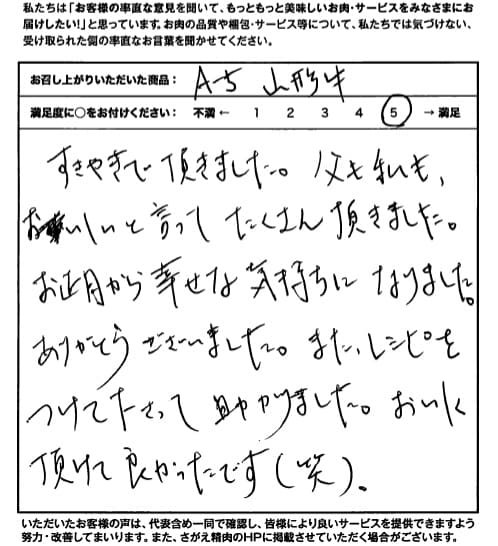 私たちは「お客様の率直な意見を聞いて、もっともっと美味しいお肉・サービスをみなさまにお
届けしたい!」と思っています。お肉の品質や梱包・サービス等について、私たちでは気づけない、
受け取られた側の率直なお言葉を聞かせてください。
お召し上がりいただいた商品： A-5 山形牛
満足度に○をお付けください： 不満 ← 1 2 3 4 5 → 満足
すきやきで頂きました。父も私も、
おいしいと言ってたくさん頂きました。
お正月から幸せな気持ちになりました。
ありがとうございました。また、レシピを
つけて下さって助かりました。おいしく
頂けて良かったです(笑)。
いただいたお客様の声は、代表含め一同で確認し、皆様により良いサービスを提供できますよう
努力・改善してまいります。また、さがえ精肉のHPに掲載させていただく場合がございます。